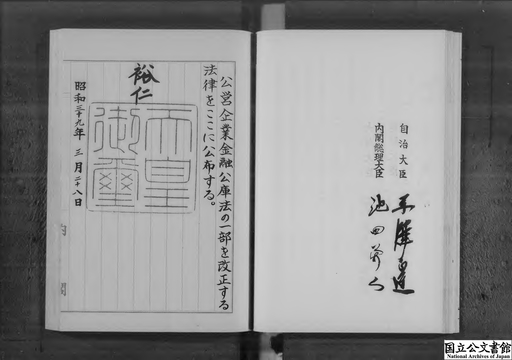 公営企業金融公庫法の一部を改正する
法律をここに公布する。
裕仁
天皇
御璽
昭和三十九年三月二十八日
内閣
自治大臣
内閣総理大臣
池田勇人
国立公文書館
National Archives of Japan